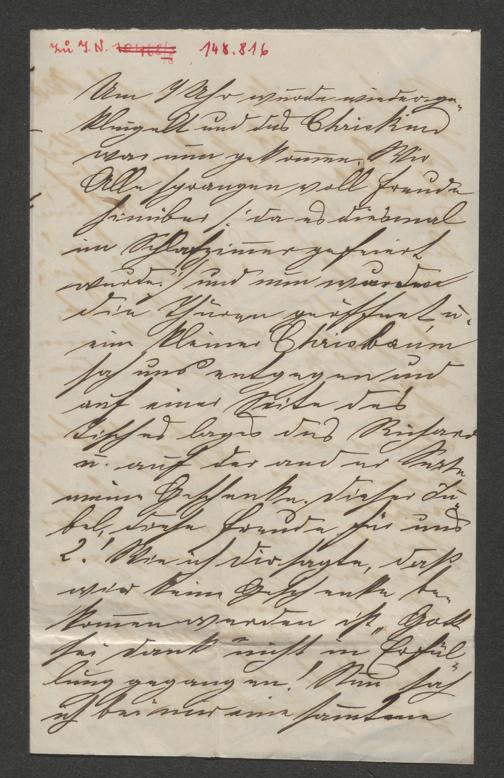 Zu J.N. 148.816
Um 7 Uhr wurde wiederge-
klingelt und das Christkind
war nun gekommen. Wir
Alle sprangen voll Freude
hinüber /: da es diesmal
im Schlafzimmer gefeiert
wurde :/ und nun wurden
die Thüren geöffnet u.
ein kleiner Christbaum
sah uns entgegen und
auf einer Seite des
Tisches lages das Richard
u. auf der anderer Seite
meine Geschenke. Dieser Ju-
bel, diese Freude für uns
2! Wie ich dir sagte, daß
wir keine Geschenke be-
kommen werden ist, Gott
sei dank nicht in Erfül-
lung gegangen! Nun sah
ich bei mir eine